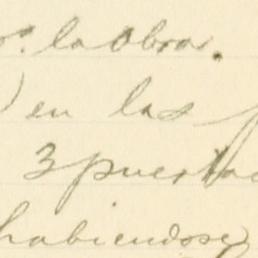 la obra.
) en las
3 puertas
habiendose